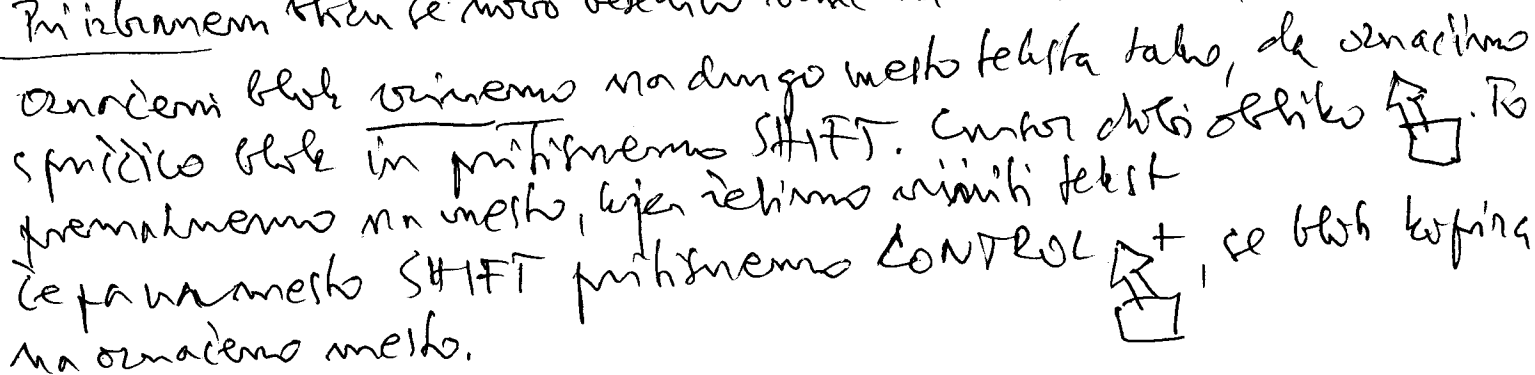 Pri izbranem se novo
označeni blok vrinemo na drugo mesto teksta tako, da označimo
s pričico blok in pritisnemo SHIFT. Cursor dobi obliko . To
premaknemo na mesto, kjer želimo vriniti tekst
če pa na mesto SHIFT pritisnemo CONTROL +, se blok kopira
na označeno mesto.